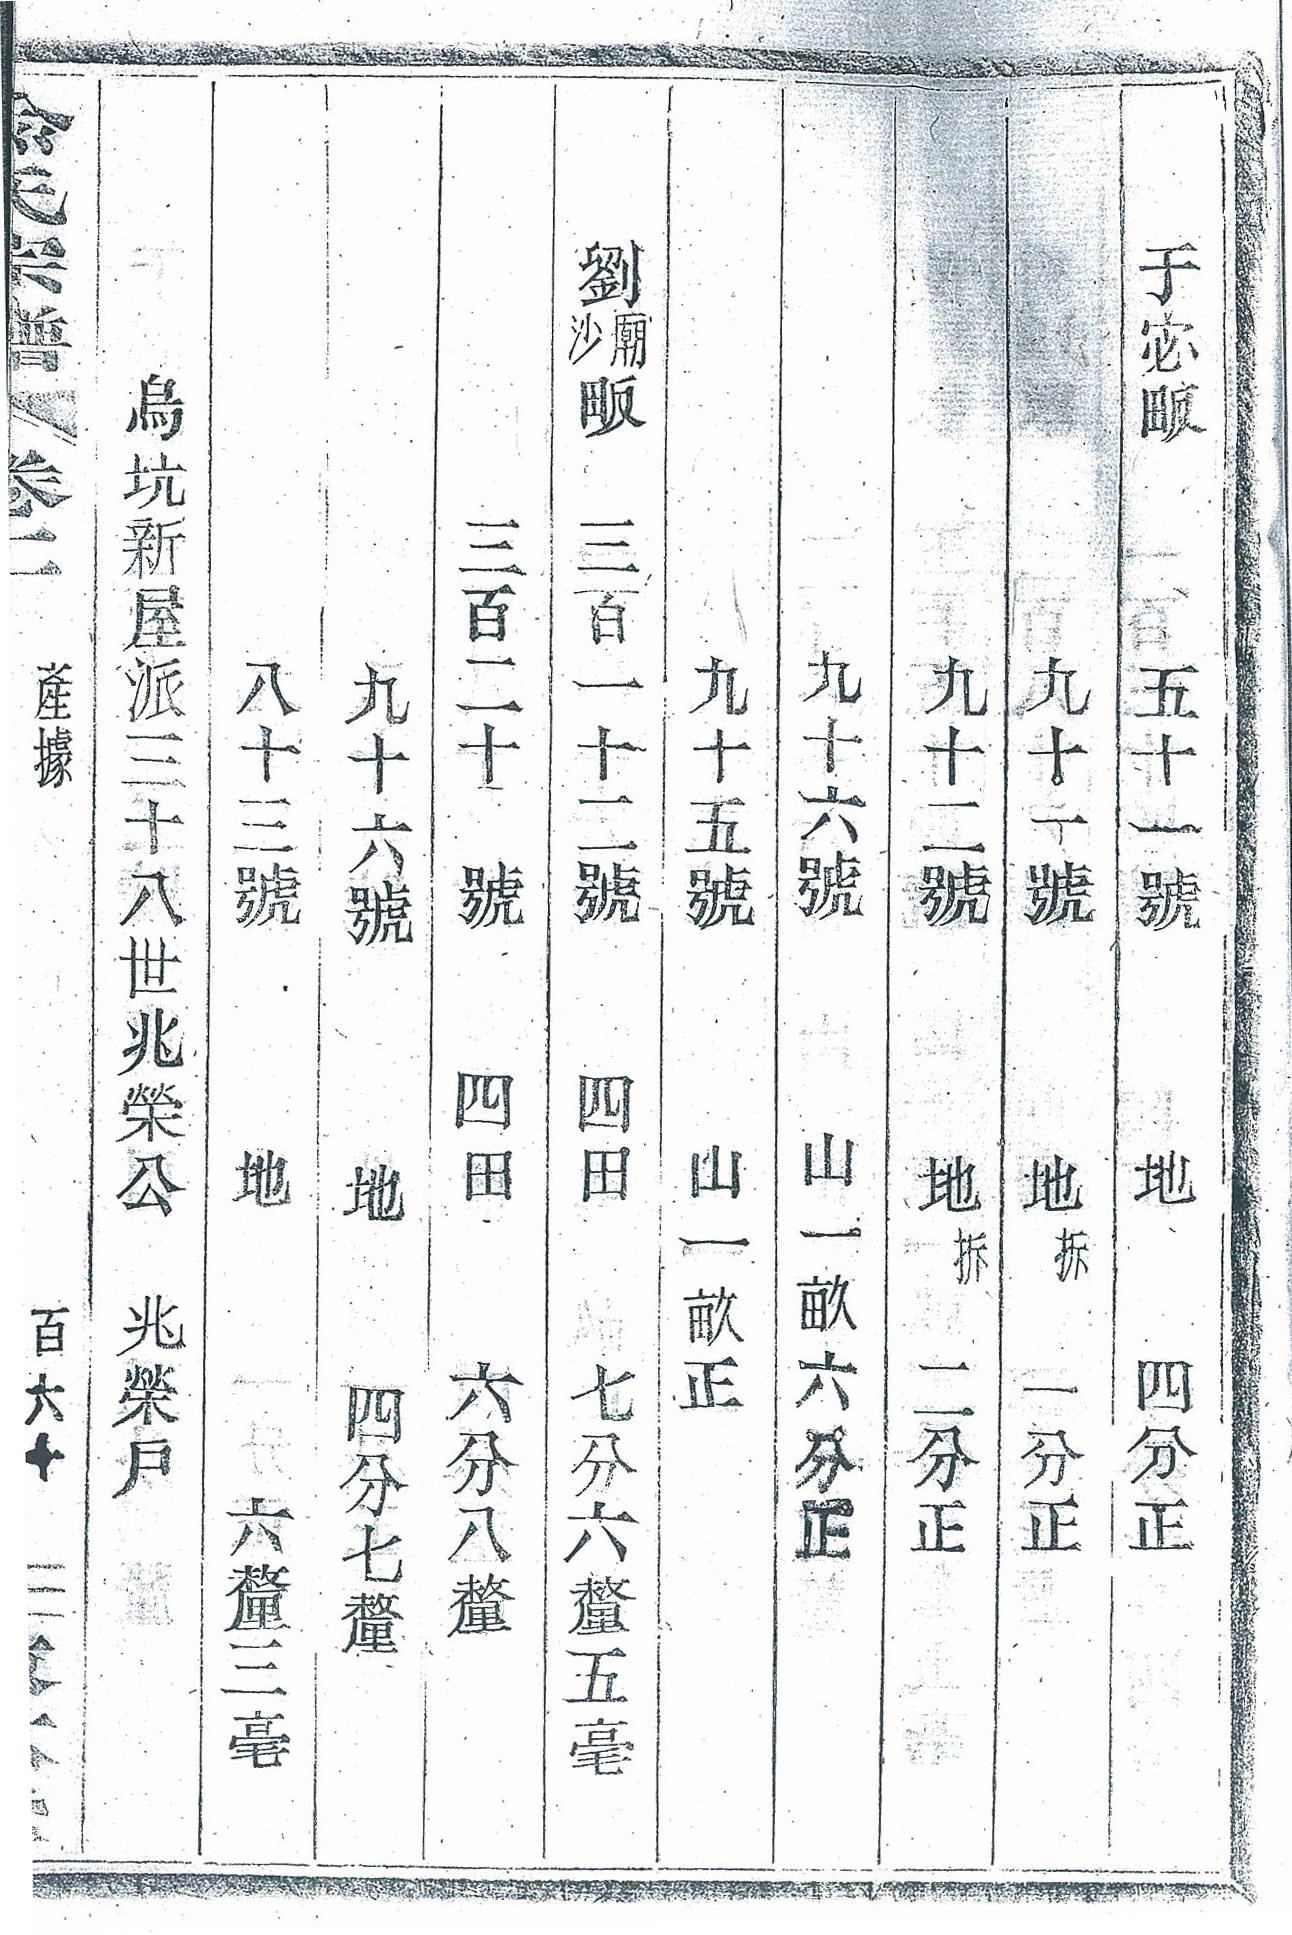 于宓畈　五十一號　地　四分正
九十一號　地拆　一分正
九十二號　地拆　二分正
九十六號　山一畝六分正
九十五號　山一畝正
劉廟沙畈　三百一十二號　四田　七分六釐五毫
三百二十號　四田　六分八釐
九十六號　地　四分七釐
八十三號　地　六釐三毫
烏坑新屋派三十八世兆榮公　兆榮戶
氏宗譜　卷二　產據　百六十　三